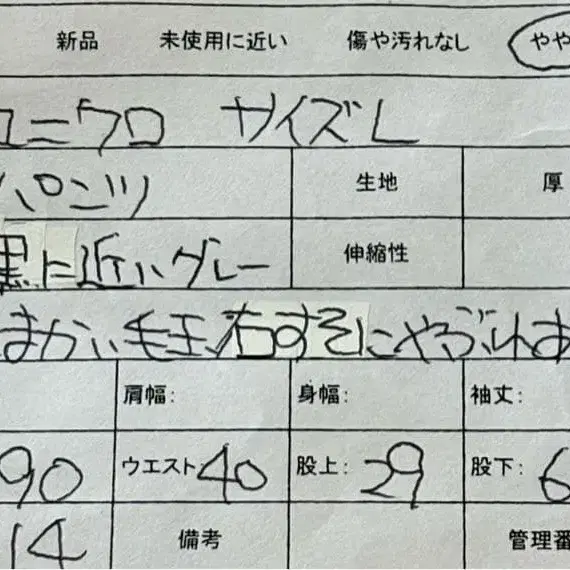 新品 未使用に近い 傷や汚れなし やや
ユニクロ サイズL
パンツ 生地 厚
黒に近いグレー 伸縮性
まかい毛玉、右すそにやぶれあ
肩幅: 身幅: 袖丈:
90 ウエスト40 股上:29 股下:6
14 備考 管理番